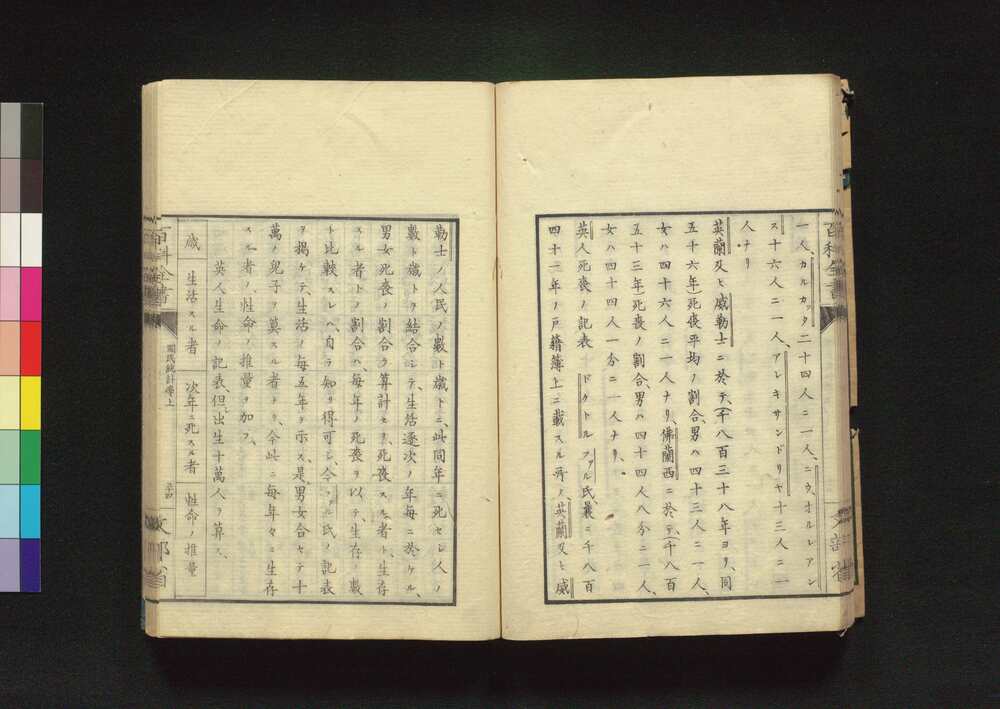 一人、カルカッタ二十四人ニ一人、ニウオルレアン
ス十六人ニ一人、アレキサンドリヤ十三人ニ一
人ナリ
英蘭及ヒ威勒士ニ於テ、(千八百三十八年ヨリ、同
五十六年)死喪平均ノ割合、男ハ四十三人ニ一人、
女ハ四十六人ニ一人ナリ、佛蘭西ニ於テ、(千八百
五十三年)死喪ノ割合、男ハ四十四人八分ニ一人、
女ハ四十四人一分ニ一人ナリ、
英人死喪ノ記表 ドクトルファル氏、曩ニ千八百
四十一年ノ戸籍簿上ニ載スル所ノ、英蘭及ヒ威
百科全書
文部省
勒士ノ人民ノ數ト歳トニ、此同年ニ死セシ人ノ
數ト歳トヲ結合シテ、生活逐次ノ年毎ニ於ケル、
男女死喪ノ割合ヲ算計セリ、死喪スル者ト、生存
スル者トノ割合ハ、毎年ノ死喪ヲ以テ、生存ノ數
ト比較スレハ、自ラ知リ得可シ、今ファル氏ノ記表
ヲ掲ケテ、生活ノ毎五年ヲ示ス、是、男女合セテ十
萬ノ兒子ヲ算スル者ナリ、今此ニ毎年々ニ生存
スル者ノ、性命ノ推量ヲ加フ、
英人生命ノ記表、但、出生十萬人ヲ算ス、
歳 生活スル者 次年ニ死スル者 性命ノ推量
百科全書
國民統計學上
文部省